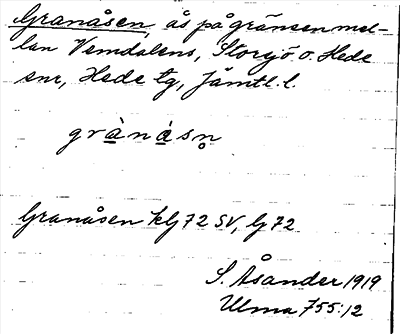 Granåsen, ås på gränsen mel-
lan Vemdalens, Storsjö o. Hede
snr, Hede tg, Jämtl. l.
grànásn̥
Granåsen klj 72 SV, lj 72
S. Åsander 1919
Ulma 755:12